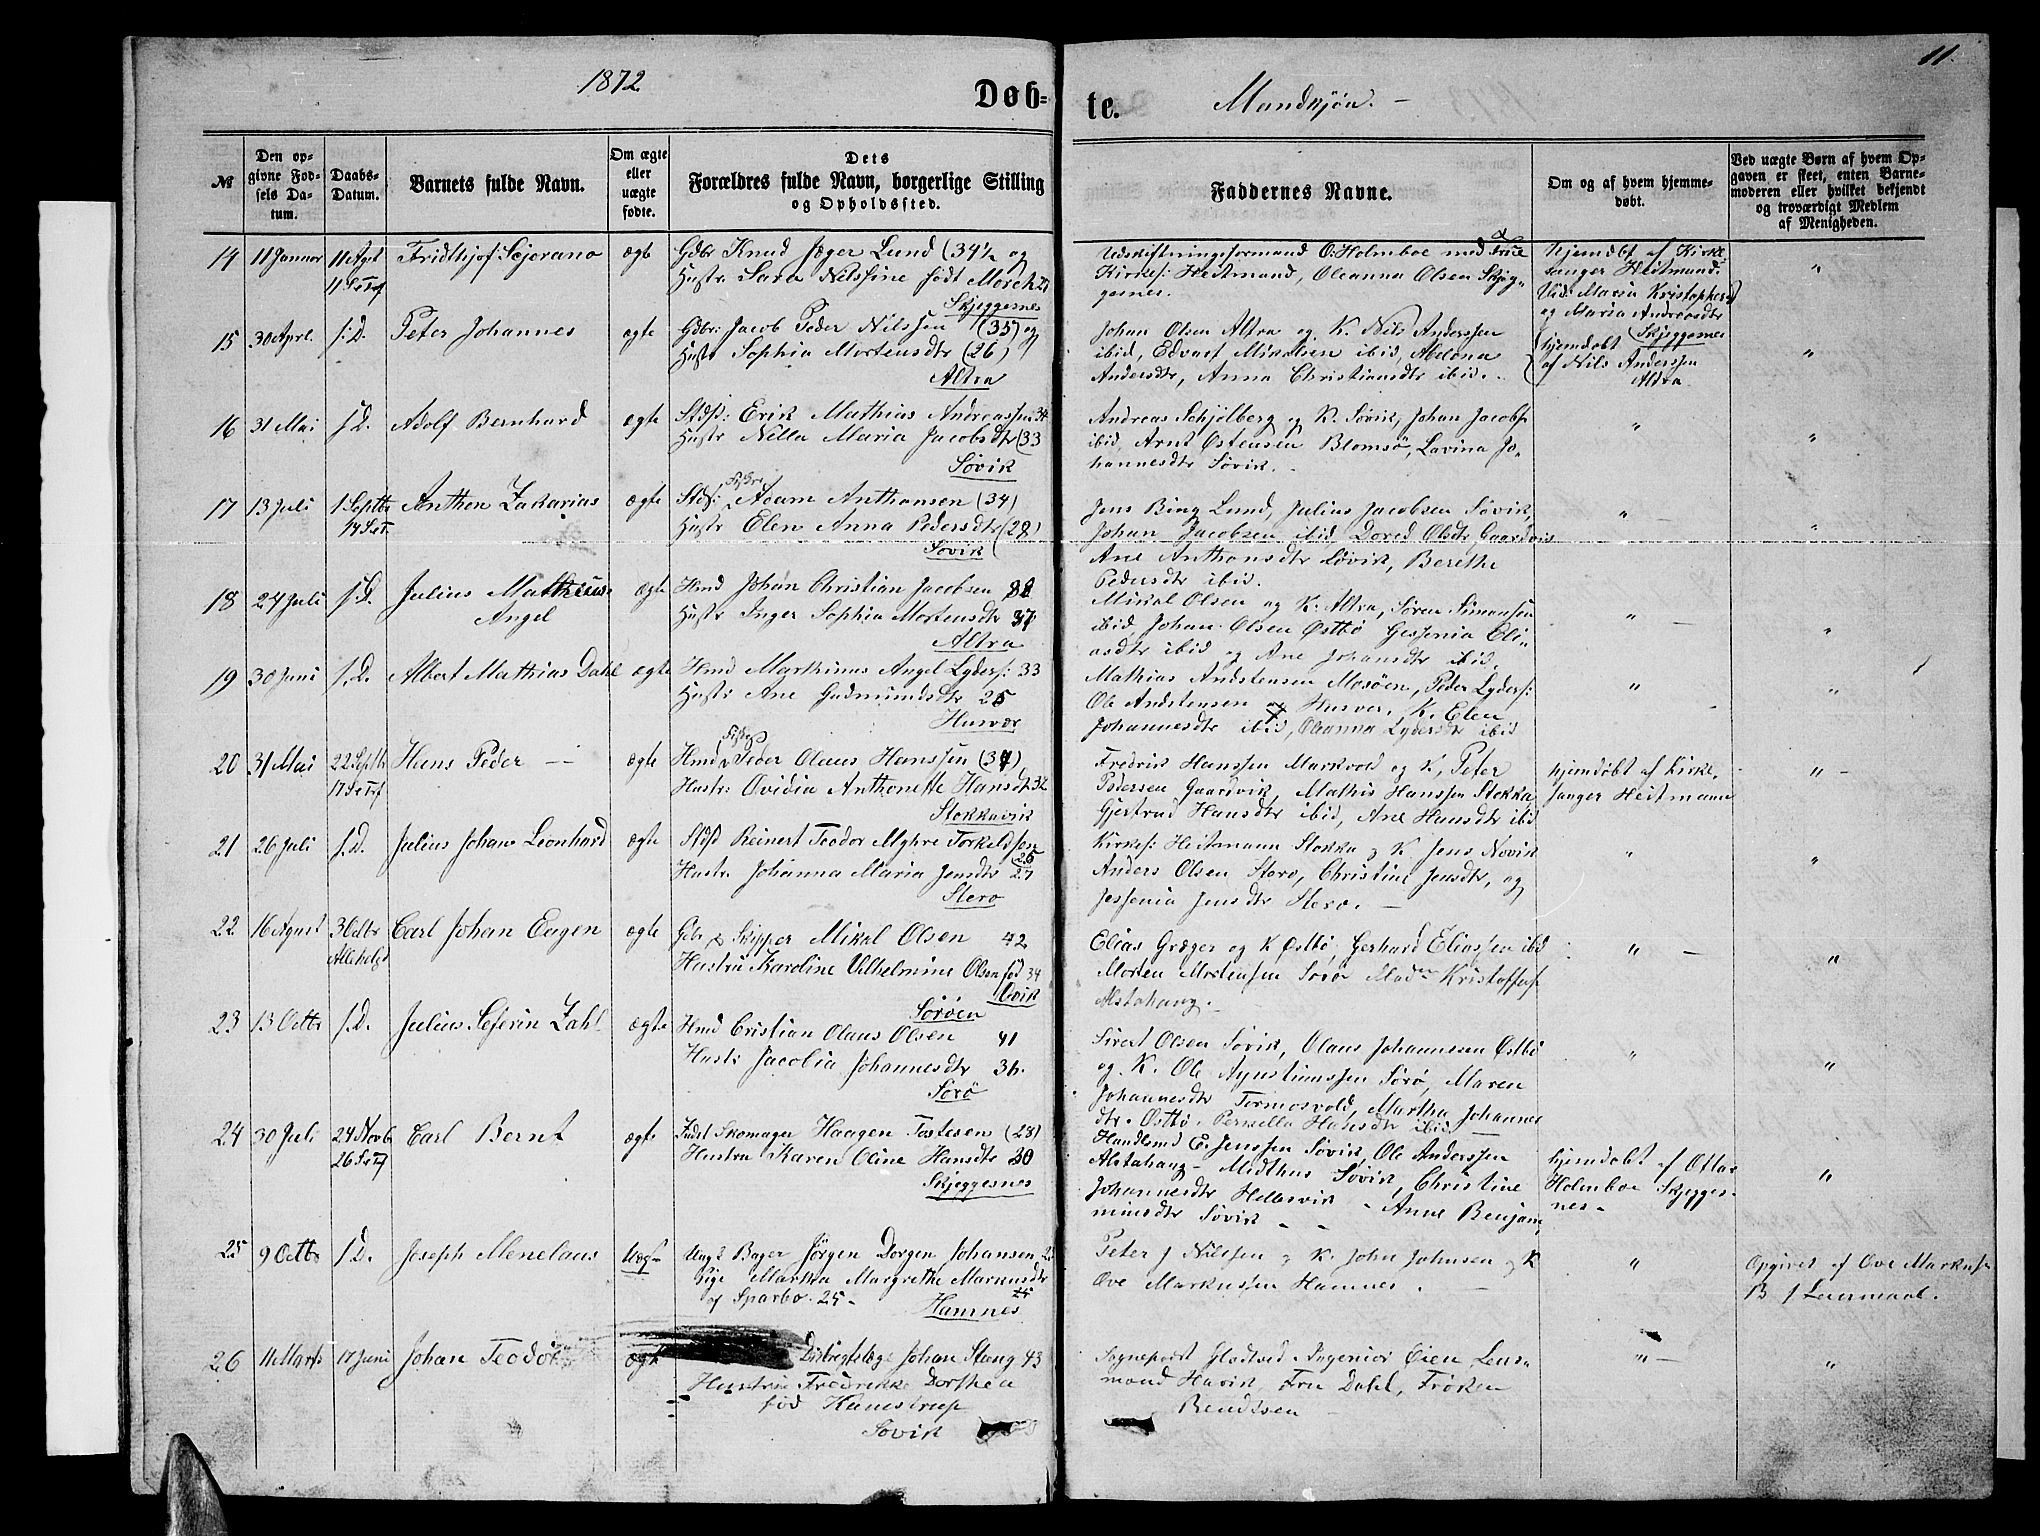 1872
Døb-
te.
Mandkjøn.
11.
№
Den op-
givne Fød-
sels Da-
tum.
Daabs-
Datum.
Barnets fulde Navn.
Om ægte
eller
uægte
fødte.
Dets
Forældres fulde Navn, borgerlige Stilling
og Opholdssted.
Faddernes Navne.
Om og af hvem hjemme-
døbt.
Ved uægte Børn af hvem Op-
gaven er skeet, enten Barne-
moderen eller hvilket bekjendt
og troværdigt Medlem
af Menigheden.
14
11 Januar
11 Aug
11 S e Tref
Fridthjof
ægte
Gdbr Knud Jæger Lund (34½ og
Hustr. Sara Nilsine født Morch
Skjeggesnes
Udskiftningsformand O. Holmboe med Frue
Kirkes: Heitmand, Oleanna Olsen Skjeg-
gesnes.
Hjemdøbt af Kirke
sanger Heitmand.
Vid: Maria Kristophers
og Maria Andreasdtr
Skjeggesnes
"
15
30 Aprl.
s. D.
Peter Johannes
ægte
Gdbr: Jacob Peder Nilssen (35) og
Hustr Sophia Mortensdtr (26)
Altra
Johan Olsen Altra og K. Nils Anderssen
ibid, Edvart Mikalsen ibid, Abelona
Andersdtr, Anna Christiansdtr ibid.
hjemdøbt
af Nils Anderssen
Altra
"
16
31 Mai
s. D.
Adolf Bernhard
ægte
Stdsf: Erik Mathias Andreassen 34
Hustr Nella Maria Jacobsdtr (33
Søvik
Andreas Schjelberg og K. Søvik, Johan Jacobs
ibid, Arnt Østensen Blomsø, Lavina Jo-
hannesdtr Søvik.
"
"
17
13 Juli
1 Septbr
14 S e T.
Anthon Zakarias
ægte
Stdsf: Adam Anthonsen (34)
Hustr Elen Anna Pedersdtr (28)
Søvik
Jens Bing Lund, Julius Jacobsen Søvik,
Johan Jacobsen ibid, Dored Olsdtr Gaardvik
Ane Anthonsdtr Søvik, Berethe
Pedersdtr ibid.
"
"
18
24 Juli
s. D.
Julius Mathias
Angel
ægte
Hmd Johan Christian Jacobsen
Hustr Inger Sophia Mortensdtr 37
Altra
Mikal Olsen og K. Altra, Søren Simonsen
ibid Johan Olsen Østbø Gessenia Eli-
asdtr ibid og Ane Johansdtr ibid.
"
"
19
30 Juni
s. D.
Albert Mathias Dahl
ægte
Hmd Marthinus Angel Lyders: 33
Hustr Ane Gudmundsdtr 25
Husvær
Mathias Andstensen Mosøen, Peder Lyders:
Ole Andstensen Husvær, K. Elen
Johannesdtr ibid, Oleanna Lydersdtr ibid
"
"
20
31 Mai
22 Septbr
17 S e Tref
Hans Peder
ægte
Hmd Peder Olaus Hanssen (34)
Hustr: Ovidia Anthonette Hansdtr 32
Stokkavik
Fredrik Hanssen Markvold og K, Peter
Pedersen Gaardvik, Mathis Hanssen Stokka
Gjertrud Hansdtr ibid, Ane Hansdtr ibid
hjemdøbt af Kirke-
sanger Heitmann
"
21
26 Juli
s. D.
Julius Johan Leonhard
ægte
Stdsf Reinert Teodor Myhre Torkeldsen
(26
Hustr. Johanna Maria Jensdtr 27
Stero
Kirkes: Heitmann Stokka og K. Jens Novik
Anders Olsen Stero, Christine Jensdtr, og
Jessenia Jensdtr Stero.
"
"
22
16 August
3 Octbr
Allehelgd
Carl Johan Eugen
ægte
Gdbr Skipper Mikal Olsen 42
Hustru Karoline Vilhelmine Olsen fød 34
Sørøen
Elias Græger og K Østbø, Gerhard Eliassen ibid
Morten Mortensen Sørø Kristoffers
Alstahaug.
"
"
23
13 Octbr
s. D.
Julius Seferin Zahl
ægte
Hmd Cristian Olaus Olsen 41
Hustr: Jacobia Johannesdtr 36.
Sørø
Sivert Olsen Søvik, Olaus Johannesen Østbø
og K. Ole Agustinussen Sørø, Maren
Johannesdtr Tormosvold, Martha Johannes
dtr Østbø, Pernella Hansdtr ibid
"
"
24
30 Juli
24 Novb
26 S e Tref
Carl Bernt
ægte
Indst Skomager Haagen Tostesen (28)
Hustru Karen Oline Hansdtr 30
Skjeggesnes
Handlsmd E. Jenssen Søvik, Ole Anderssen
Alstahaug - Midthus Søvik, Christine
Johannesdtr Hellesvik - Anne Benjam
minsdtr Søvik
hjemdøbt af Ottar
Holmboe Skjegges-
nes
"
25
9 Octbr
s. D.
Joseph Menelaus
Uægte
Ungk Bager Jørgen Dorgen Johansen
Pige Martha Margrethe Markusdtr
af Sparbo. 25
Hamnes
Peter J Nilssen og K. John Johnsen og K
Ove Markussen Hamnes.
"
Opgivet af Ove Markuss
B f Leiermaal.
26
11 Marts
17 Juni
Johan Teodor
ægte
Distregtslæge Johan Stang 43
Hustru Fredrikke Dorthea
fød Kamstrup
Søvik
Sogneprest Gladtved, Ingeniør Øien, Lens-
mand Havik, Fru Dahl, Frøken
Bendtsen
"
"